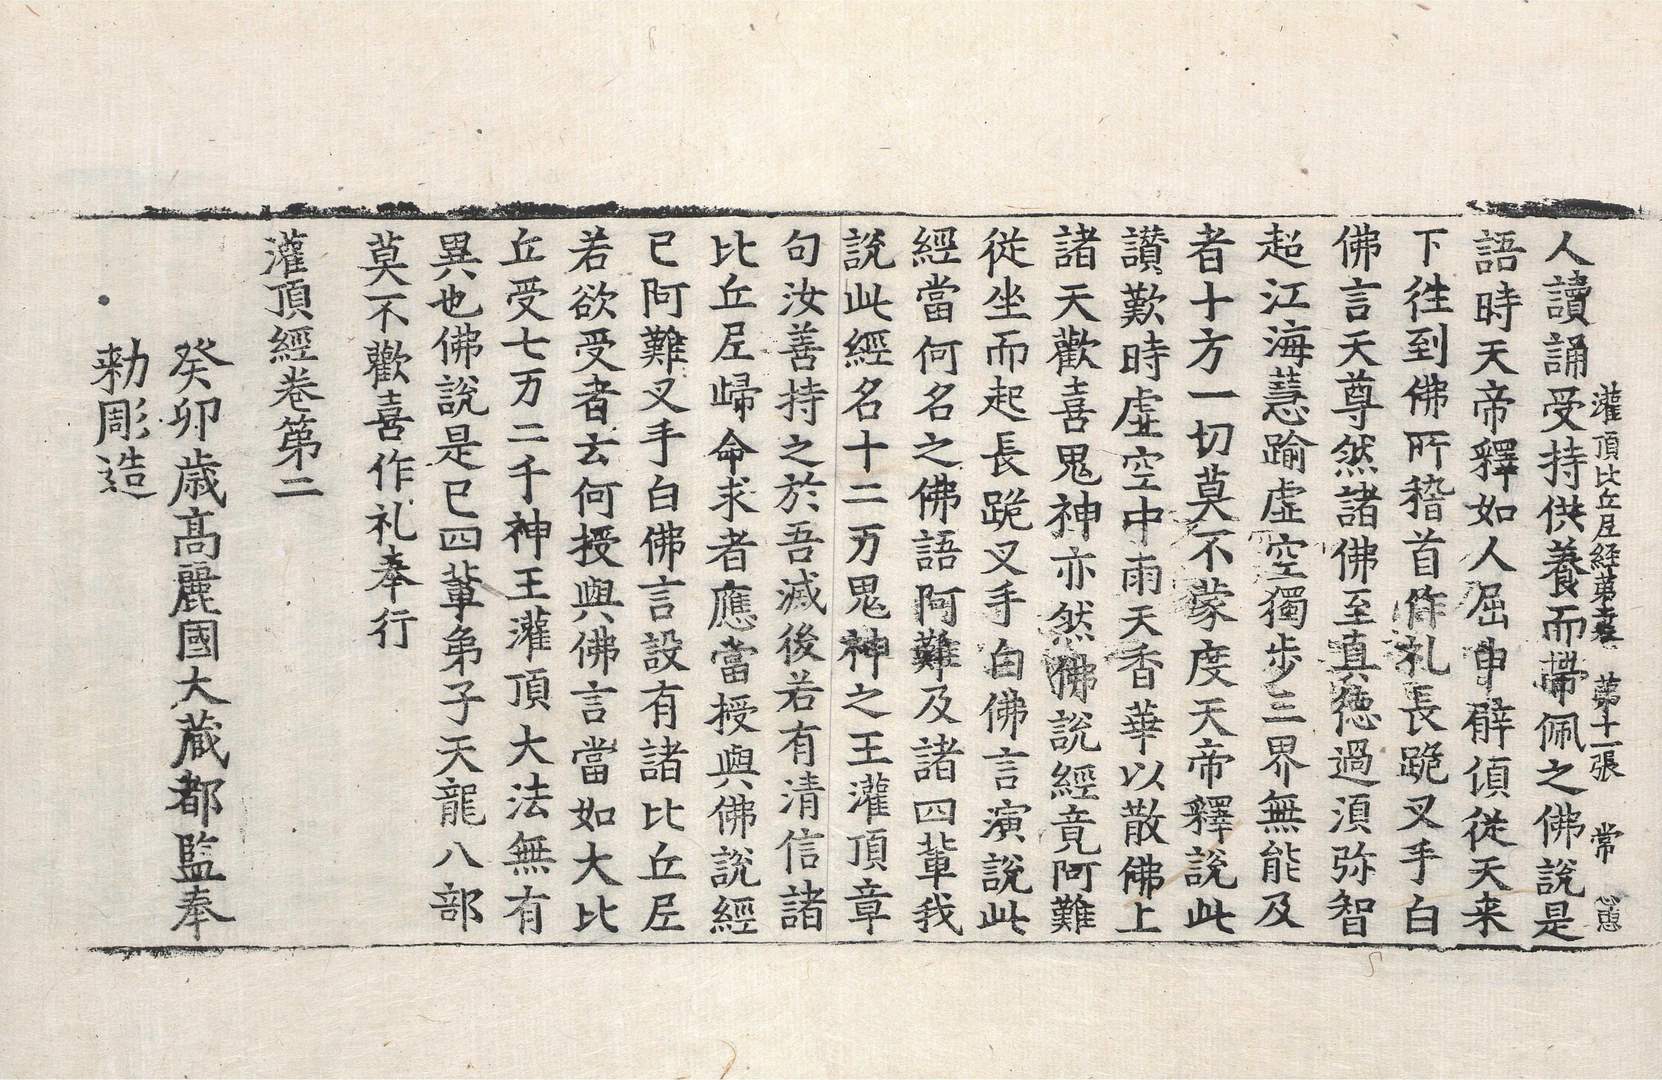 灌頂比丘尼經第二卷　第十一張　常
人讀誦受持供養而帶佩之佛說是
語時天帝釋如人屈申臂頃從天来
下徃到佛所稽首作礼長跪叉手白
佛言天尊然諸佛至真德過湏弥智
超江海慧踰虛空獨步三界無能及
者十方一切莫不蒙度天帝釋說此
讃歎時虛空中雨天香華以散佛上
諸天歡喜鬼神亦然佛說經竟阿難
從坐而起長跪叉手白佛言演說此
經當何名之佛語阿難及諸四輩我
說此經名十二万鬼神之王灌頂章
句汝善持之於吾滅後若有清信諸
比丘尼歸命求者應當授與佛說經
已阿難叉手白佛言設有諸比丘尼
若欲受者云何授與佛言當如大比
丘受七万二千神王灌頂大法無有
異也佛說是已四輩弟子天龍八部
莫不歡喜作礼奉行
灌頂經卷第二
癸卯歳高麗國大蔵都監奉
勅彫造